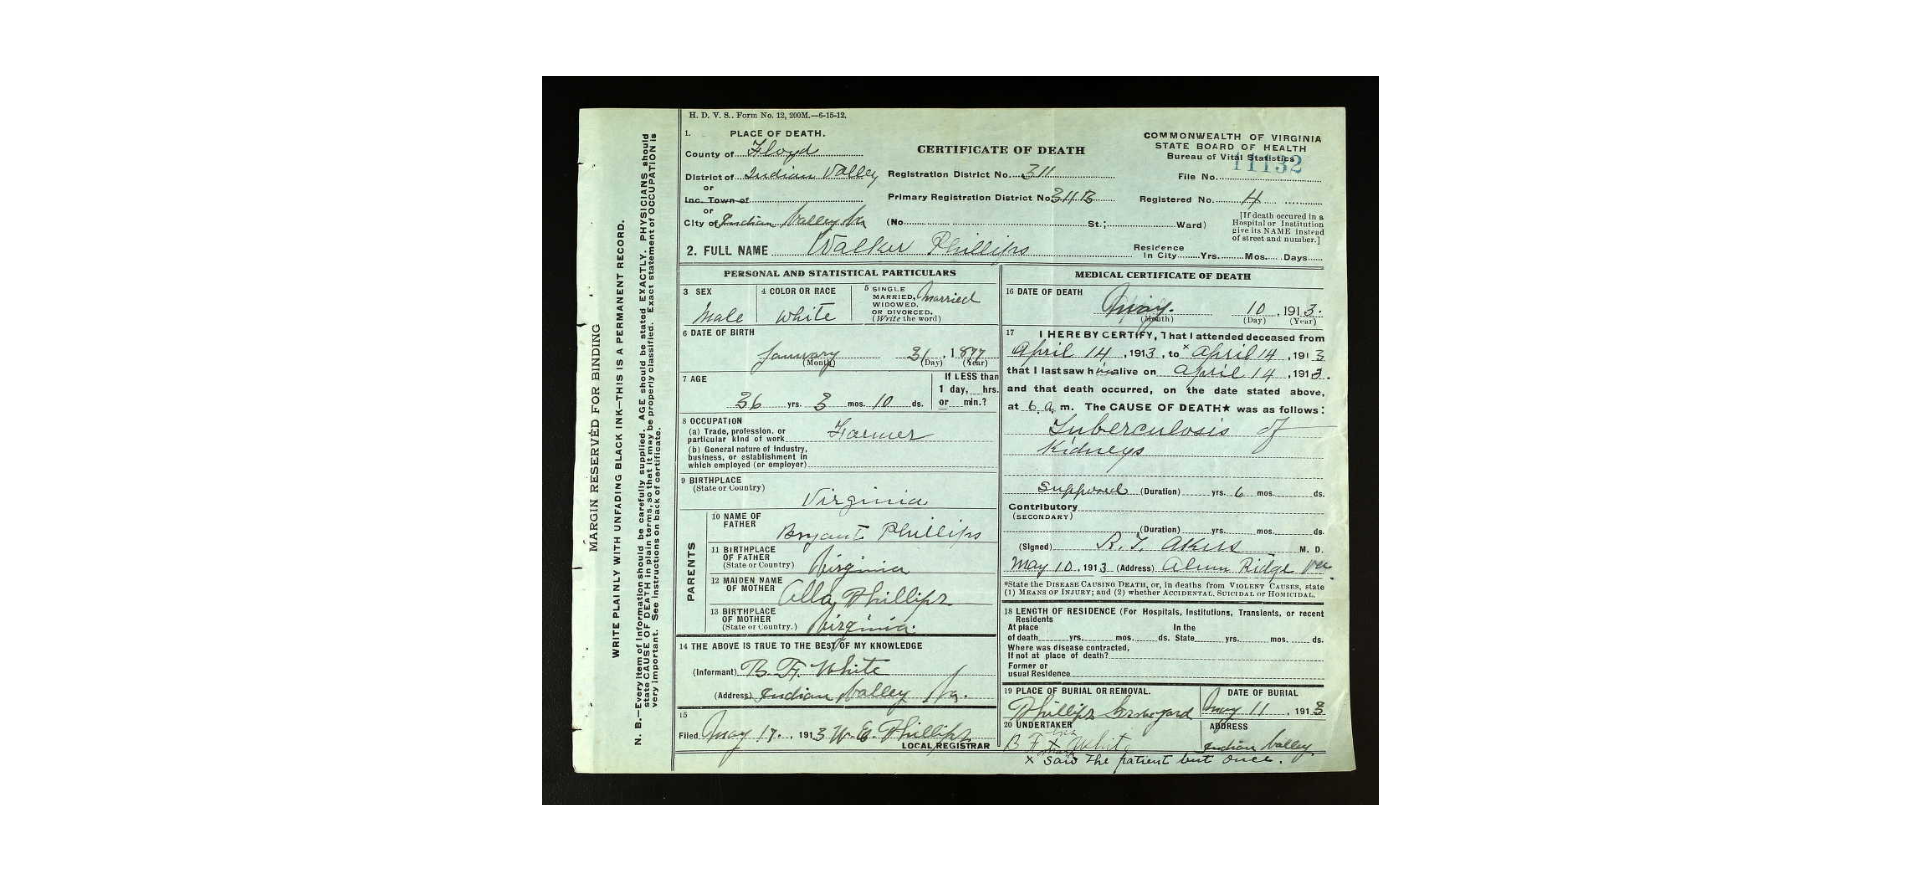 H. D. V. S.. Form No. 12, 200M.—6-15-12.
1. PLACE OF DEATH.
County of Floyd
District of Indian Valley
or
Inc. Town of
or
City of Indian Valley Va
CERTIFICATE OF DEATH
Registration District No. 311
Primary Registration District No 311 B
(No. St.; Ward)
COMMONWEALTH OF VIRGINIA
STATE BOARD OF HEALTH
Bureau of Vital Statistics
File No. 11132
Registered No. 4
[If death occured in a
Hospital or Institution
give its NAME instead
of street and number.]
2. FULL NAME Walker Phillips
Residence
In City Yrs. Mos. Days
PERSONAL AND STATISTICAL PARTICULARS
3 SEX
Male
4 COLOR OR RACE
White
5 SINGLE
MARRIED,
WIDOWED,
OR DIVORCED.
(Write the word)
Married
6 DATE OF BIRTH
January 31, 1877
(Month) (Day) (Year)
7 AGE
36 yrs. 3 mos. 10 ds.
If LESS than
1 day, hrs.
or min.?
8 OCCUPATION
(a) Trade, profession, or
particular kind of work Farmer
(b) General nature of Industry,
business, or establishment in
which employed (or employer)
9 BIRTHPLACE
(State or Country)
Virginia
PARENTS
10 NAME OF
FATHER
Bryant Phillips
11 BIRTHPLACE
OF FATHER
(State or Country)
Virginia
12 MAIDEN NAME
OF MOTHER
Phillips
13 BIRTHPLACE
OF MOTHER
(State or Country.)
Virginia
14 THE ABOVE IS TRUE TO THE BEST OF MY KNOWLEDGE
(Informant) B. F. White
(Address) Indian Valley Va.
15
Filed May 17. , 1913 W. E. Phillips
LOCAL REGISTRAR
MEDICAL CERTIFICATE OF DEATH
16 DATE OF DEATH
May. 10 , 1913.
(Month) (Day) (Year)
17 I HEREBY CERTIFY, That I attended deceased from
April 14 , 1913 , to x April 14 , 1913
that I last saw him alive on April 14 , 1913.
and that death occurred, on the date stated above,
at 6 a. m. The CAUSE OF DEATH★ was as follows:
Tuberculosis of
Kidneys
Supposed (Duration) yrs. 6 mos. ds.
Contributory
(SECONDARY)
(Duration) yrs. mos. ds.
(Signed) R. T. Akers M. D.
May 10 , 1913 (Address) Alum Ridge Va
*State the DISEASE CAUSING DEATH, or, in deaths from VIOLENT CAUSES, state
(1) MEANS OF INJURY; and (2) whether ACCIDENTAL, SUICIDAL or HOMICIDAL.
18 LENGTH OF RESIDENCE (For Hospitals, Institutions, Transients, or recent
Residents
At place In the
of death yrs. mos. ds. State yrs. mos. ds.
Where was disease contracted,
If not at place of death?
Former or
usual Residence
19 PLACE OF BURIAL OR REMOVAL.
Phillips Graveyard
DATE OF BURIAL
May 11 , 1913
20 UNDERTAKER
B F White
ADDRESS
Indian Valley
x saw the patient but once.
MARGIN RESERVED FOR BINDING
WRITE PLAINLY WITH UNFADING BLACK INK—THIS IS A PERMANENT RECORD.
N. B.—Every item of information should be carefully supplied. AGE should be stated EXACTLY. PHYSICIANS should
state CAUSE OF DEATH in plain terms, so that it may be properly classified. Exact statement of OCCUPATION is
very important. See instructions on back of certificate.